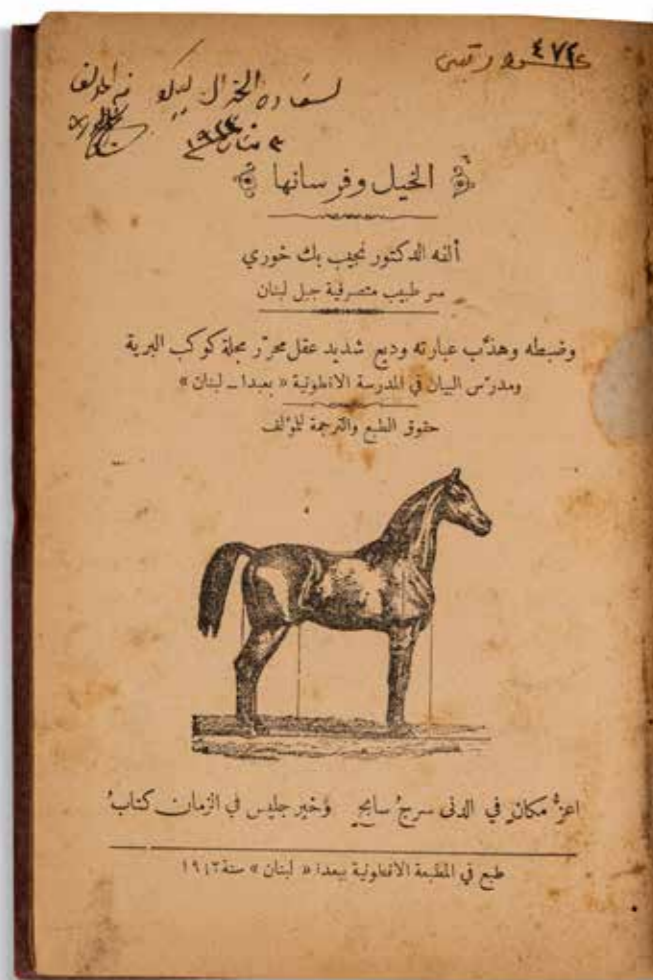 ٤٧٢
لسعادة الجنرال
الخيل وفرسانها
ألفه الدكتور نجيب بك خوري
سر طبيب متصرفية جبل لبنان
وضبطه وهذّب عبارته وديع شديد عقل محرّر مجلة كوكب البرية
ومدرّس البيان في المدرسة الانطونية « بعبدا ـ لبنان »
حقوق الطبع والترجمة للمؤلف
اعزُّ مكان في الدنى سرجُ سابحٍ وخير جليس في الزمان كتابُ
طبع في المطبعة الانطونية ببعدا « لبنان » سنة